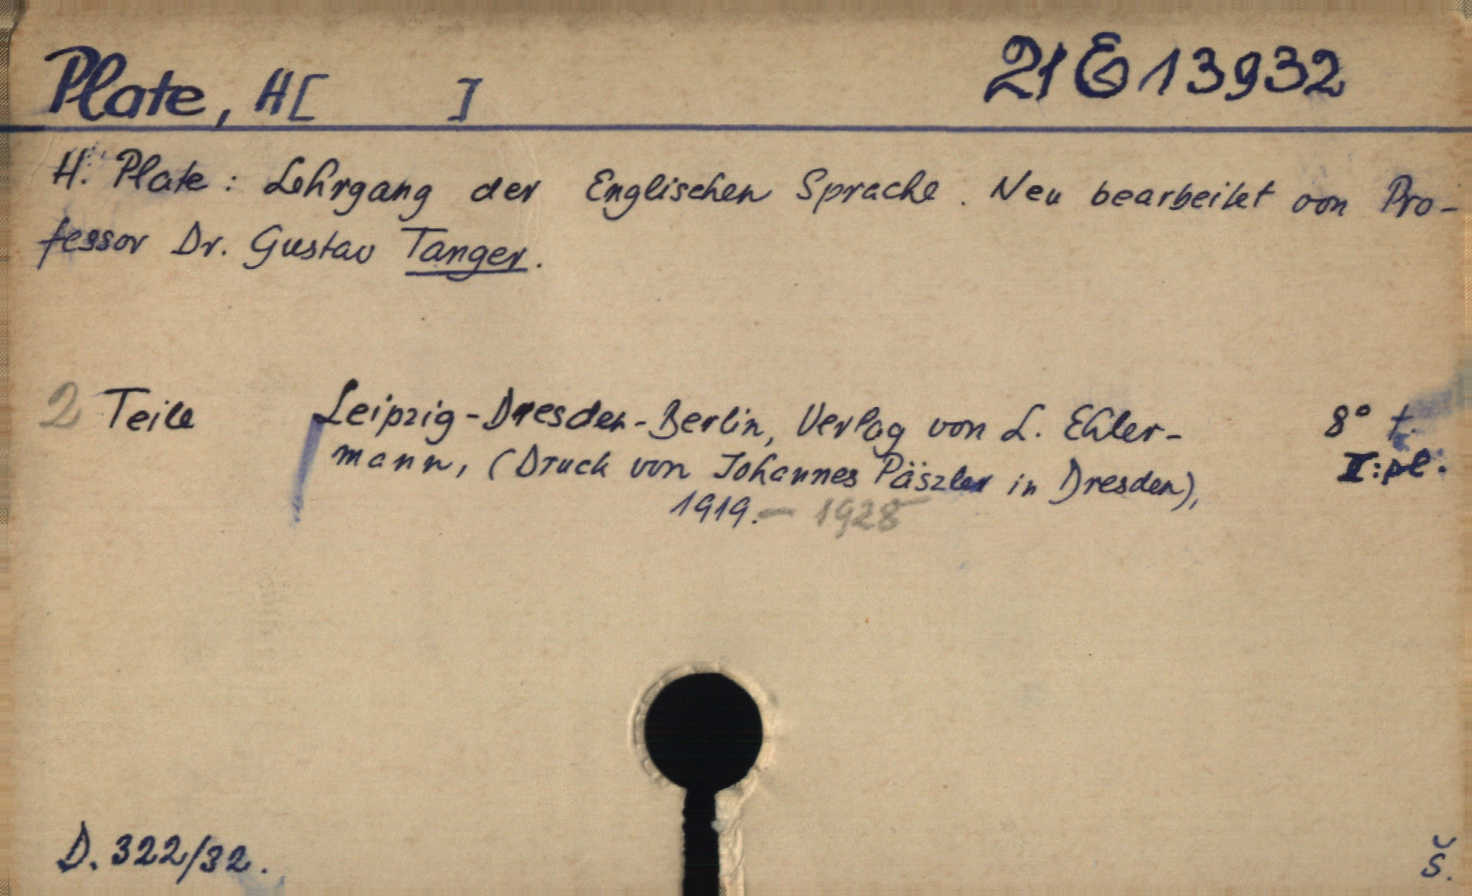 Plate, H[ ] 21 E 13932
H. Plate : Lehrgang der Englischen Sprache. Neu bearbeitet von Pro-
fessor Dr. Gustav Tanger.
2 Teile Leipzig-Dresden-Berlin, Verlag von L. Ehler- 8° t.
mann, (Druck von Johannes Päszler in Dresden), II:pl.
1919.- 1928
D. 322/32. Š.